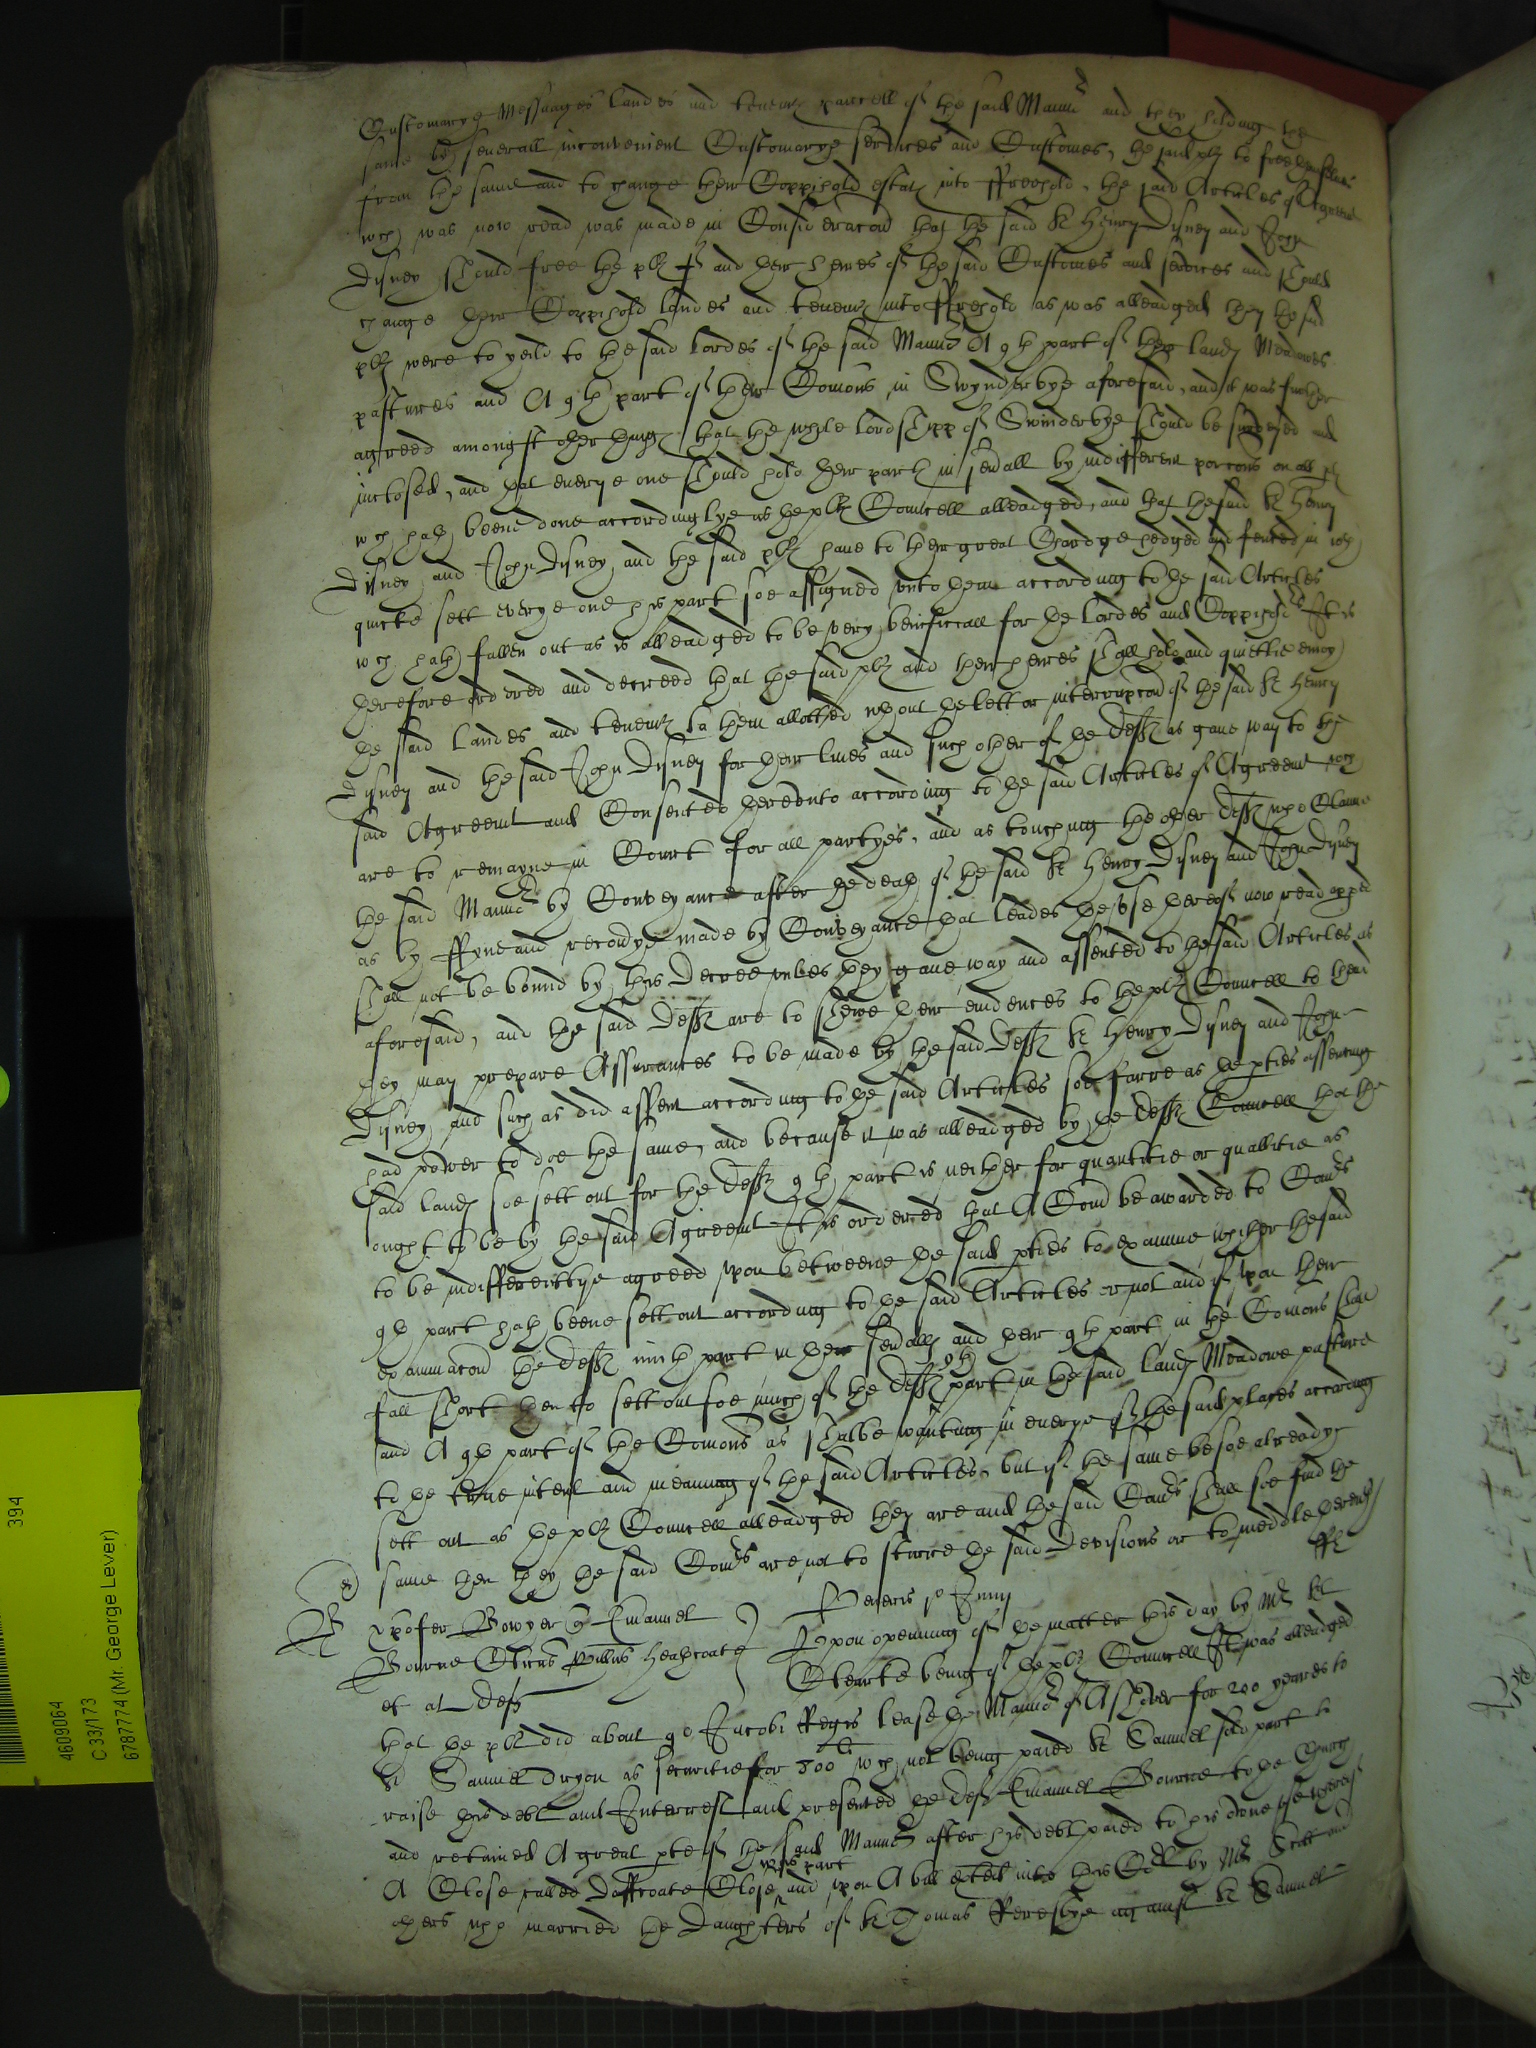 Customarye Messuages landes and tenemts parcell of the said Mannor and they holding the
same by severall inconvenient Customarye services and Customes, the said plts to free themselves
from the same and to change their Coppihold estats into ffreehold, the said Articles of Agreemt
wch was now read was made in Consideracon that the said Sr Henry Disney and John
Disney should free the plts and their heires of the said Customes and services and should
change their Coppihold landes and tenemts into ffrehold as was alleadged then the said
plts were to yeild to the said lordes of the said Mannor A 9th part of their lands Meadowes
pastures and A 9th part of their Comons in Swynderbye aforesaid, and it was further
agreed amongst other things that the whole lordshipp of Swinderbye should be surveyed and
inclosed, and that everye one should hold their parts in sevrall by indifferent porcons on all
wch hath beene done accordinglye as the plts Councell alleadged, and that the said Sr Henry
Disney and John Disney and the said plts have to their great Chardge hedged and fenced in wth
quicke sett everye one his part soe assigned unto them according to the said Articles
wch hath fallen out as is alleadged to be very beneficiall for the lordes and Coppiholdrs It is
therefore ordered and decreed that the said plts and their heires shall hold and quietlie enioy
the said landes and tenemts to them allotted wthout the lett or interrupcon of the said Sr Henry
Disney and the said John Disney for their lives and such other of the defts as gave way to the
said Agreemt and Consented thereunto according to the said Articles of Agreemt wch
are to remayne in Court for all partyes, and as touching the other defts who Claime
the said Mannor by Conveyance after the death of the said Sr Henry Disney and John Disney
as by ffyne and recoverye made by Conveyance that leades the use thereof now read
shall not be bound by this Decree unles they gave way and assented to the said Articles as
aforesaid, and the said defts are to shewe their evidences to the plts Councell to thend
they may prepare Assurances to be made by the said defts Sr Henry Disney and John
Disney and such as did assent according to the said Articles soe farre as the pties assenting
had power to doe the same, and because it was alleadged by the defts Councell that the
said lands soe sett out for the defts 9th part is neither for quantitie or quallitie as
ought to be by the said Agreemt It is ordered that A Comn be awarded to Comrs
to be indifferentlye agreed upon betweene the said pties to examine whether the said
9th part hath beene sett out according to the said Articles or not and if upon their
examinacon the defts ninth part in their sevralls and their 9th part in the Comons shall
fall short then to sett out soe much of the defts 9th part in the said lands Meadowe pasture
and A 9th part of the Comons as shalbe wanting in everye of the said places according
to the true intent and meaning of the said Articles, but if the same be soe alreadye
sett out as the plts Councell alleadged they are and the said Comrs shall soe find the
same then they the said Comrs are not to sturre the said devisions or to meddle therewth
B xpofer Bowyer qr Emanuel
Bourne Clicus Willus Heathcoate
et al defts
Veneris po Junij
Upon opening of the matter this day by Mr
Clearke being of the plts Councell It was alleadged
that the plt did about 9o Jacobi Regis lease the Mannor of Ashover for 200 yeares to
Sr Samuel Tryon as securitie for 800li wch not being paied Sr Samuel sold part to
raise his debt and Interrest and presented the deft Emanuel Bourne to the Church
and retained A great pte of the said Mannor after his debt paied to his owne use whereof
A Close called Daffcoate Close was part and upon A bill exted into this Cort by Mr Scott and
others who married the daughters of Sr Thomas Reresbye against Sr Samuel
394
4609064
C 33/173
6787774 (Mr. George Lever)